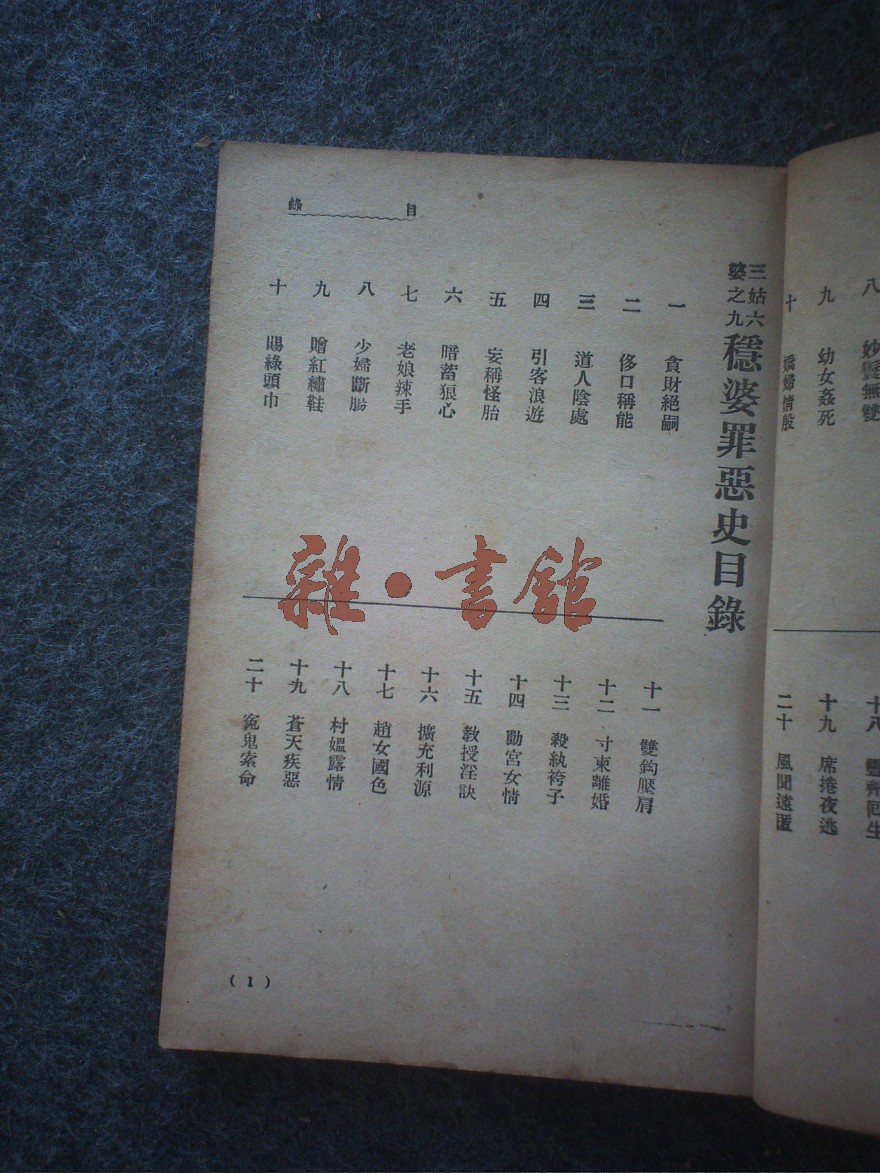 目錄
三姑六
婆之九
穩婆罪惡史目錄
一 貪財絕嗣
二 侈口稱能
三 道人陰處
四 引客浪遊
五 妄稱怪胎
六 暗蓄狠心
七 老娘辣手
八 少婦斷腸
九 贈紅繡鞋
十 賜綠頭巾
十一 雙鈎壓肩
十二 寸柬離婚
十三 殺紈袴子
十四 動宮女情
十五 教授淫訣
十六 擴充利源
十七 趙女國色
十八 村媼露情
十九 蒼天疾惡
二十 冤鬼索命
(1)
八 妙髮無雙
九 幼女姦死
十 婦情殷
十八 靈齊回生
十九 席捲夜逃
二十 風聞遠匿
雜·書館